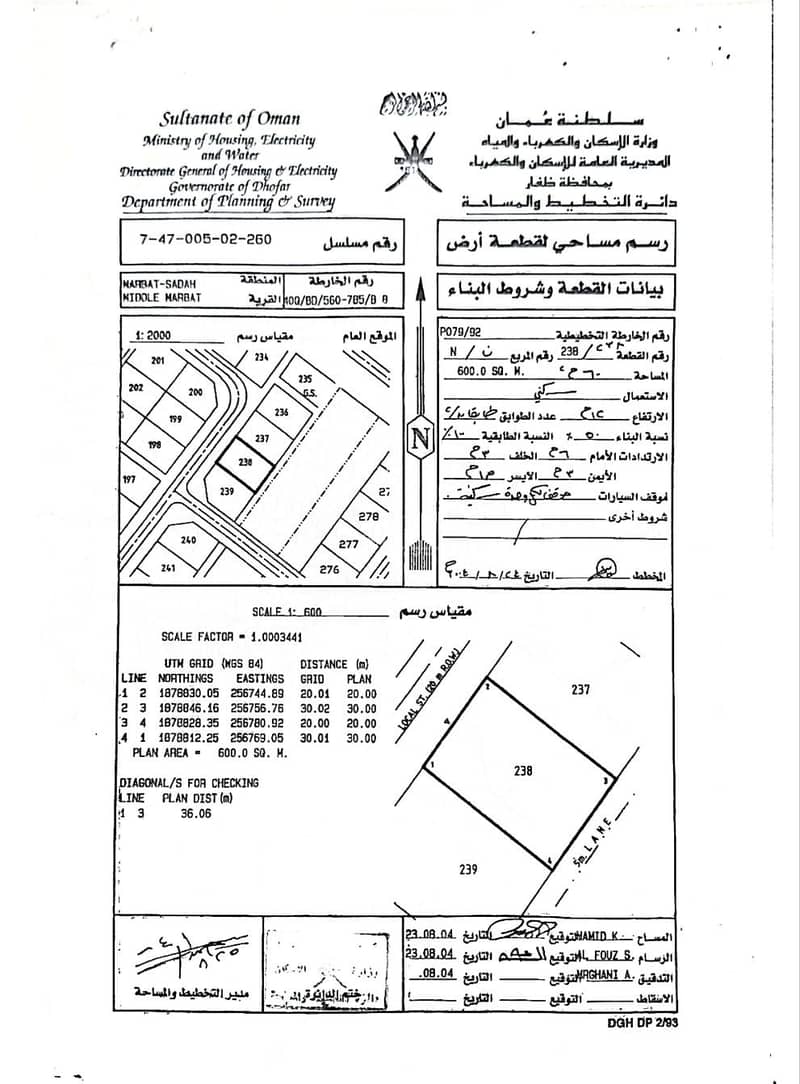 Sultanate of Oman
Ministry of Housing, Electricity
and Water
Directorate General of Housing & Electricity
Governorate of Dhofar
Department of Planning & Survey
سلطنة عُمان
وزارة الإسكان والكهرباء والمياه
المديرية العامة للإسكان والكهرباء
بمحافظة ظفار
دائرة التخطيط والمساحة
7-47-005-02-260 رقم مسلسل
رسم مساحي لقطعة أرض
MARBAT-SADAH المنطقة
MIDDLE MARBAT القرية
رقم الخارطة
بيانات القطعة وشروط البناء
1: 2000 مقياس رسم الموقع العام
201
202
200
199
198
197
234
235
G.S.
236
237
238
239
240
241
278
277
276
27
N
PO79/92 رقم الخارطة التخطيطية
رقم القطعة 238 / ٢٣٨ رقم المربع ن / N
600.0 SQ. M. ٦٠٠ م٢ المساحة
الاستعمال سكني
الارتفاع ١٢م عدد الطوابق
نسبة البناء ٥٠٪ النسبة الطابقية
الارتدادات الأمام ٦م الخلف ٣م
الأيمن ٣م الأيسر
موقف السيارات
شروط أخرى
المخطط التاريخ
SCALE 1: 600 مقياس رسم
SCALE FACTOR = 1.0003441
UTM GRID (WGS 84) DISTANCE (m)
LINE NORTHINGS EASTINGS GRID PLAN
1 2 1878830.05 256744.89 20.01 20.00
2 3 1878846.16 256756.76 30.02 30.00
3 4 1878828.35 256780.92 20.00 20.00
4 1 1878812.25 256769.05 30.01 30.00
PLAN AREA = 600.0 SQ. M.
DIAGONAL/S FOR CHECKING
LINE PLAN DIST(m)
1 3 36.06
LOCAL ST. (20 m R.O.W)
237
238
239
1
2
3
4
5m LANE
مدير التخطيط والمساحة
ختم الدائرة
المساح HAMID K. التوقيع التاريخ 23.08.04
الرسام AL FOUZ S. التوقيع التاريخ 23.08.04
التدقيق MARGHANI A. التوقيع التاريخ .08.04
الاسقاط التوقيع التاريخ
DGH DP 2/93